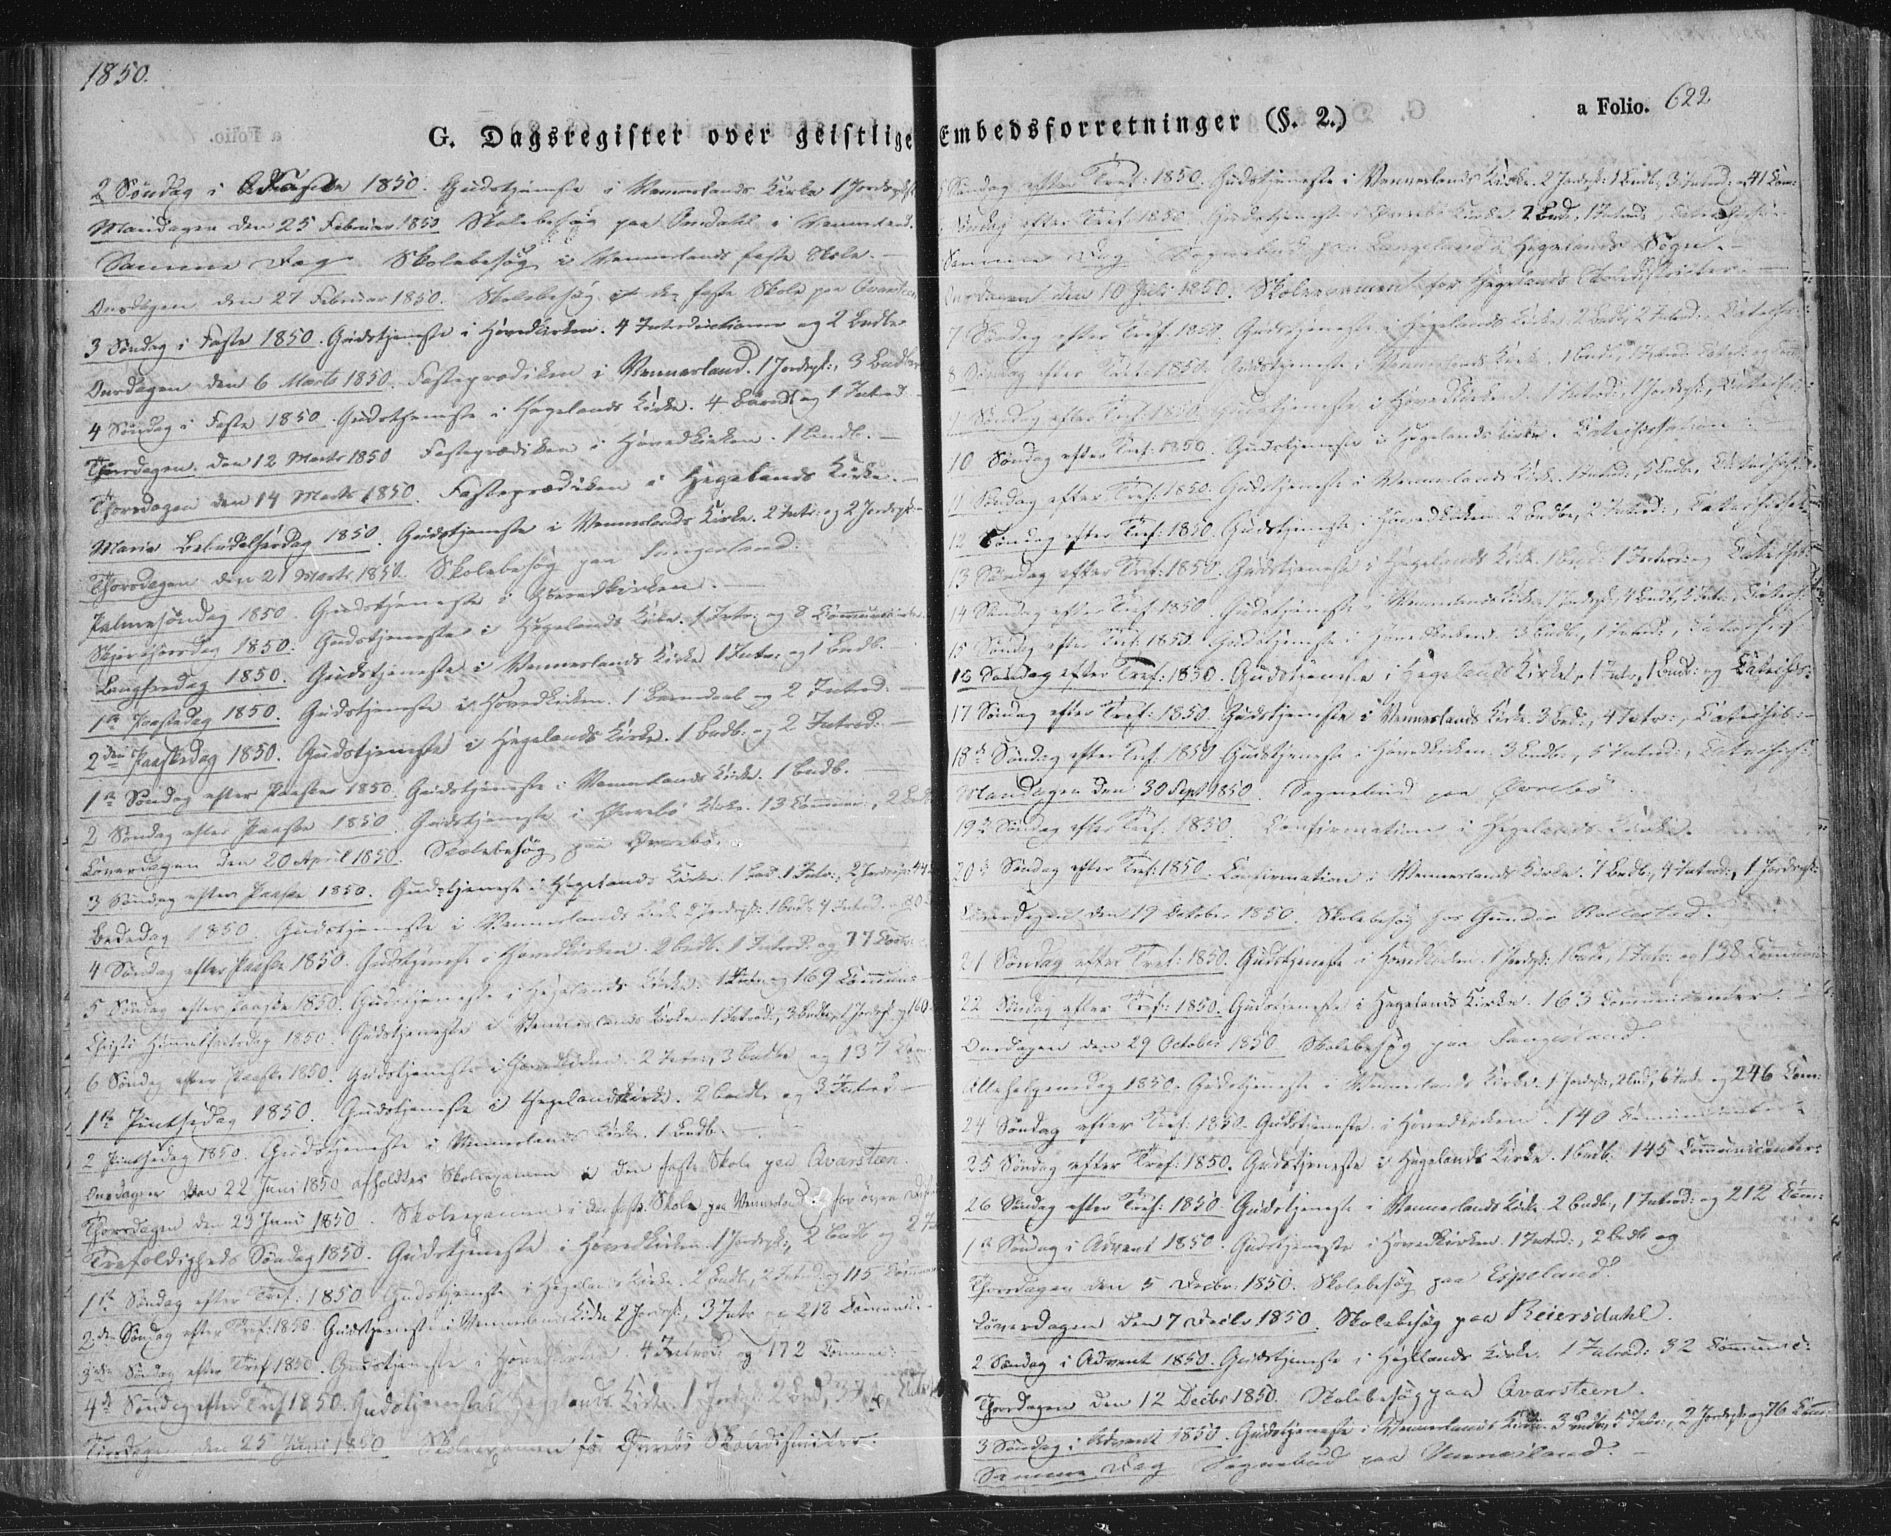 1850.
a Folio. 622
G. Dagsregister over geistlige Embedsforretninger (§. 2.)
2 Søndag i Faste 1850. Gudstjeneste i Vennerlands Kirke 1 Jordspk:
Mandagen den 25 Februar 1850 Skolebesøg paa i Vennerland.
Samme Dag Skolebesøg i Vennerlands faste Skole. —
Onsdagen den 27 Februar 1850. Skolebesøg i den faste Skole paa Qvarsteen
3 Søndag i Faste 1850. Gudstjeneste i Hovedkirken. 4 Introductioner og 2 Barndb
Onsdagen den 6 Marts 1850. Fasteprædiken i Vennerland. 1 Jordspk:, 3 Barndb
4 Søndag i Faste 1850. Gudstjeneste i Hægelands Kirke. 4 Barndb og 1 Introd
Tirsdagen den 12 Marts 1850 Fasteprædiken i Hovedkirken. 1 Barndb. —
Thorsdagen den 14 Marts 1850. Fasteprædiken i Hægelands Kirke. —
Maria Bebudelsesdag 1850. Gudstjeneste i Vennerlands Kirke. 2 Intr: og 2 Jordspk: —
Thorsdagen den 21 Marts 1850. Skolebesøg paa
Palmesøndag 1850. Gudstjeneste i Hovedkirken. —
Skjærthorsdag 1850. Gudstjeneste i Hægelands Kirke. 1 Intr: og 8 Communicanter
Langfredag 1850. Gudstjeneste i Vennerlands Kirke 1 Intr: og 1 Barndb.
1ste Paaskedag 1850. Gudstjeneste i Hovedkirken. 1 Barnedaab og 2 Introd: —
2den Paaskedag 1850. Gudstjeneste i Hægelands Kirke. 1 Barndb: og 2 Introd: —
1ste Søndag efter Paaske 1850. Gudstjeneste i Vennerlands Kirke. 1 Barndb. —
2 Søndag efter Paaske 1850. Gudstjeneste i Øvrebø Kirke. 13 Commun:, 2 Barndb
Løverdagen den 20 April 1850. Skolebesøg paa Øvrebø.
3 Søndag efter Paaske 1850. Gudstjeneste i Hægelands Kirke. 1 Barnd. 1 Intr:, 2 Jordspk: 44
Bededag 1850. Gudstjeneste i Vennerlands Kirke 2 Jordspk: 1 Barndb: 4 Introd:
4 Søndag efter Paaske 1850. Gudstjeneste i Hovedkirken. 2 Barndb: 1 Introd: og 77 Comm
5 Søndag efter Paaske 1850. Gudstjeneste i Hægelands Kirke. 1 Intr: og 169 Commun:
Christi Himmelfartsdag 1850. Gudstjeneste i Vennerlands Kirke. 1 Introd:, 3 Barndb, 1 Jordsp: og 160
6 Søndag efter Paaske 1850. Gudstjeneste i Hovedkirken. 2 Intr:, 3 Barndb og 137 Com
1ste Pintsedag 1850. Gudstjeneste i Hægelands Kirke. 2 Barndb og 3 Introd —
2 Pintsedag 1850. Gudstjeneste i Vennerlands Kirke. 1 Barndb. —
Onsdagen den 22 Juni 1850 afholdtes Skoleexamen i den faste Skole paa Qvarsteen.
Thorsdagen den 23 Juni 1850. Skoleexamen i den faste Skole paa Vennerland for øvre
Trefoldigheds Søndag 1850. Gudstjeneste i Hovedkirken. 1 Jordspk:, 2 Barndb og
1ste Søndag efter Tref: 1850. Gudstjeneste i Hægelands Kirke. 2 Barndb, 2 Introd: og 115 Commun
2den Søndag efter Tref: 1850. Gudstjeneste i Vennerlands Kirke 2 Jordspk:, 3 Intr og 218 Communi:
3die Søndag efter Tref 1850. Gudstjeneste i Hovedkirken. 4 Introd: og 172 Commun: —
4de Søndag efter Tref 1850. Gudstjeneste i Hægelands Kirke. 1 Jordspk: 2 Barnd, 3
Tirsdagen den 25 Juni 1850 Skoleexamen for Øvrebø Skoledistrikter.
Søndag efter Tref: 1850. Gudstjeneste i Vennerlands Kirke. 2 Jordspk: 1 Barndb, 3 Introd: 41 Com:
Søndag efter Tref: 1850. Gudstjeneste i Øvrebø Kirke 2 Barnd:, 1 Introd:,
Samme Dag Sognebud paa Langeland i Hægelands Sogn. —
Onsdagen den 10 Juli 1850. Skoleexamen for Hægelands Skoledistrikter. —
7 Søndag efter Tref: 1850. Gudstjeneste i Hægelands Kirke 2 Barndb, 2 Introd:, Catechis:
8 Søndag efter Tref: 1850. Gudstjeneste i Vennerlands Kirke. 1 Barndb: 1 Introd:
9 Søndag efter Tref: 1850. Gudstjeneste i Hovedkirken. 1 Introd:, 1 Jordspk:, Catechis:
10 Søndag efter Tref: 1850. Gudstjeneste i Hægelands Kirke. Catechisation
11 Søndag efter Tref: 1850. Gudstjeneste i Vennerlands Kirke. 1 Introd:, 5 Barndb, Catechis:
12 Søndag efter Tref: 1850. Gudstjeneste i Hovedkirken 2 Barndb, 2 Introd:, Catechisat:
13 Søndag efter Tref: 1850. Gudstjeneste i Hægelands Kirke. 1 Barnd: 1 Introd: og Catechis:
14 Søndag efter Tref: 1850. Gudstjeneste i Vennerlands Kirke 1 Jordspk:, 4 Barndb, 5 Intr:, Catech:
15 Søndag efter Tref: 1850. Gudstjeneste i Hovedkirken. 3 Barndb:, 1 Introd:, Catechis:
16 Søndag efter Tref: 1850. Gudstjeneste i Hægelands Kirke, 1 Intr:, 1 Barndb: og Catechis:
17 Søndag efter Tref: 1850. Gudstjeneste i Vennerlands Kirke. 3 Barnd:, 4 Intr:, Catechis: —
18de Søndag efter Tref. 1850 Gudstjeneste i Hovedkirken. 3 Barndb:, 5 Introd:, Catechis:
Mandagen den 30 Sept 1850. Sognebud paa Øvrebø.
19de Søndag efter Tref: 1850. Confirmation i Hægelands Kirke.
20de Søndag efter Tref: 1850. Confirmation i Vennerlands Kirke. 7 Barndb:, 4 Introd:, 1 Jordspk:
Løverdagen den 19 October 1850. Skolebesøg hos
21 Søndag efter Tref: 1850. Gudstjeneste i Hovedkirken. 1 Jordspk: 1 Barndb, 1 Intr: og 138 Communi:
22 Søndag efter Tref: 1850. Gudstjeneste i Hægelands Kirke. 163 Communicanter. —
Onsdagen den 29 October 1850. Skolebesøg paa
Allehelgensdag 1850. Gudstjeneste i Vennerlands Kirke. 1 Jordspk:, 2 Barndb, 6 Intr: og 246 Com:
24 Søndag efter Tref: 1850. Gudstjeneste i Hovedkirken. 140 Communicanter
25 Søndag efter Tref: 1850. Gudstjeneste i Hægelands Kirke. 1 Barndb: 145 Communicanter:
26 Søndag efter Tref: 1850. Gudstjeneste i Vennerlands Kirke. 2 Barndb:, 1 Introd: og 212 Com:
1ste Søndag i Advent 1850. Gudstjeneste i Hovedkirken. 1 Introd:, 2 Barndb og
Thorsdagen den 5 Decbr: 1850. Skolebesøg paa Espeland.
Løverdagen den 7 Decbr 1850. Skolebesøg paa Reiersdahl.
2 Søndag i Advent 1850. Gudstjeneste i Hægelands Kirke. 1 Introd: 32 Communic:
Thorsdagen den 12 Decbr 1850. Skolebesøg paa Qvarsteen.
3 Søndag i Advent 1850. Gudstjeneste i Vennerlands Kirke. 3 Barndb, 5 Intr:, 2 Jordspk: og 76 Com
Samme Dag Sognebud paa Vennerland. —